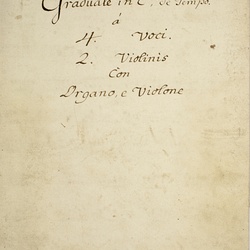 Graduale in C, de Temp.
á
4. Voci.
2. Violinis
Con
Organo, e Violone